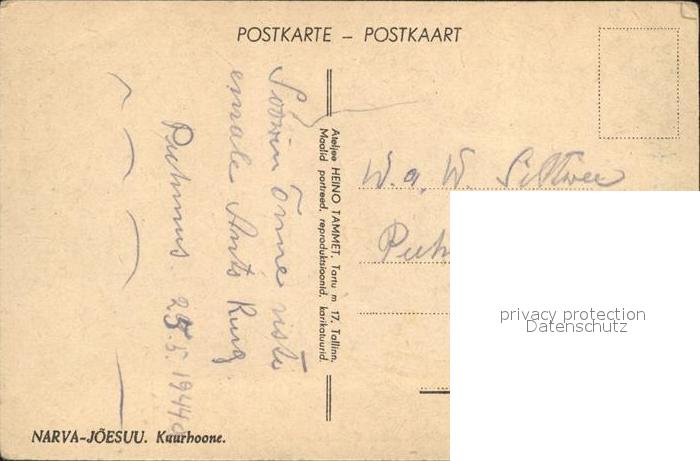 POSTKARTE – POSTKAART
Soovin Õnne risti
emale Ants Kurg.
Puhmus. 25.5.1944
Ateljee HEINO TAMMET, Tartu m 17, Tallinn.
Maalid portreed, reproduktsioonid, karikatuurid.
W. a. W.
Puh
privacy protection
Datenschutz
NARVA-JÕESUU. Kuurhoone.